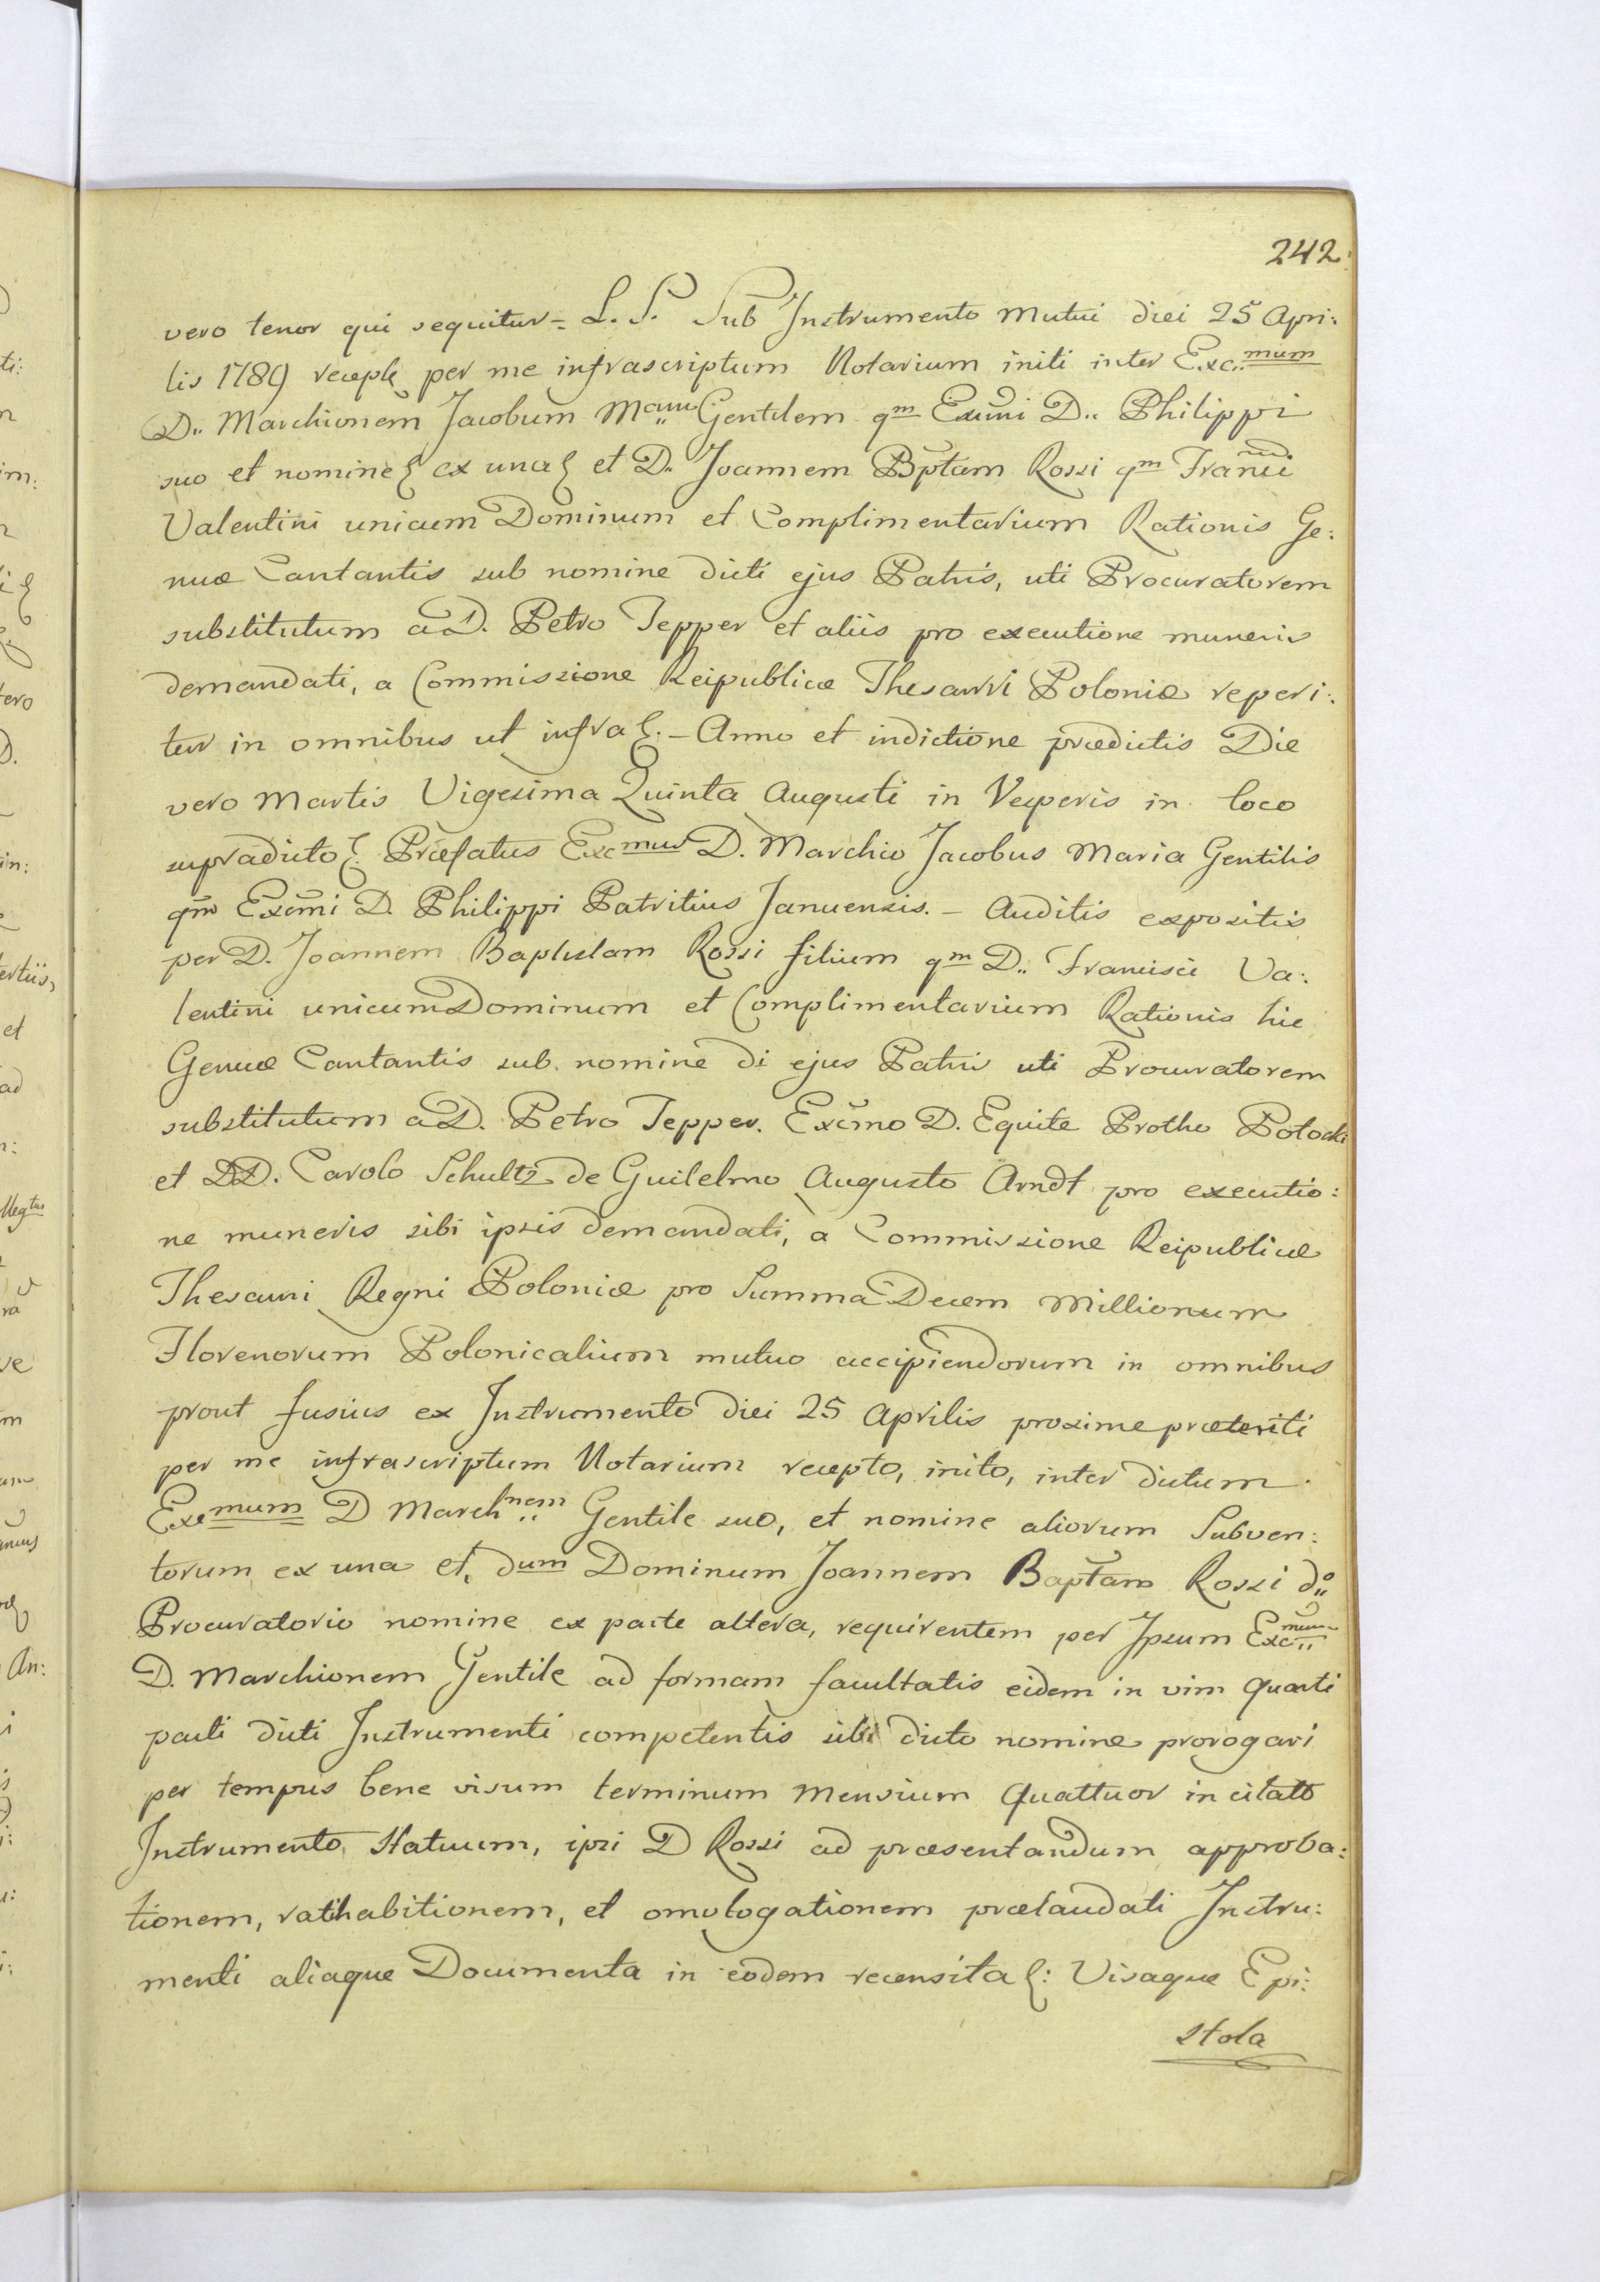 242.
vero tenor qui sequitur = L. S. Sub Instrumento Mutui diei 25 Apri:
lis 1789 per me infrascriptum Notarium initi inter Exc.mum
D.. Marchionem Jacobum M.am Gentilem qm Excmi D.. Philippi
suo et nomine ex una et D. Joannem Bptam Rossi qm
Valentini unicum Dominum et Complimentarium Rationis Ge:
nuæ Cantantis sub nomine dicti ejus Patris, uti Procuratorem
substitutum a D. Petro Tepper et aliis pro executione muneris
demandati, a Commissione Reipublicæ Thesauri Poloniæ reperi:
tur in omnibus ut infra. – Anno et indictione prædictis Die
vero Martis Vigesima Quinta Augusti in Vesperis in loco
supradicto. Præfatus Excmus D. Marchio Jacobus Maria Gentilis
qm Excmi D. Philippi Patritius Januensis. – Auditis expositis
per D. Joannem Baptistam Rossi filium qm D.. Francisci Va:
lentini unicum Dominum et Complimentarium Rationis hic
Genuæ Cantantis sub nomine di ejus Patris uti Procuratorem
substitutum a D. Petro Tepper. Excmo D. Equite Protho Potocki
et DD. Carolo Schultz de Guilelmo Augusto Arndt pro executio:
ne muneris sibi ipsis demandati, a Commissione Reipublicæ
Thesauri Regni Poloniæ pro Summa Decem Millionum
Florenorum Polonicalium mutuo accipiendorum in omnibus
prout fusius ex Instrumento diei 25 Aprilis proxime præteriti
per me infrascriptum Notarium recepto, inito, inter dictum
Excmum D March.nem Gentile suo, et nomine aliorum Subven:
torum ex una et, dum Dominum Joannem Baptam Rossi do
Procuratorio nomine ex parte altera, requirentem per Ipsum Exc.mum
D. Marchionem Gentile ad formam facultatis eidem in vim Quarti
pacti dicti Instrumenti competentis sibi dicto nomine prorogari
per tempus bene visum terminum Mensium Quattuor in citato
Instrumento Statuum, ipsi D Rossi ad præsentandum approba:
tionem, ratihabitionem, et omologationem prælaudati Instru:
menti aliaque Documenta in eodem recensita: Visaque Epi:
stola